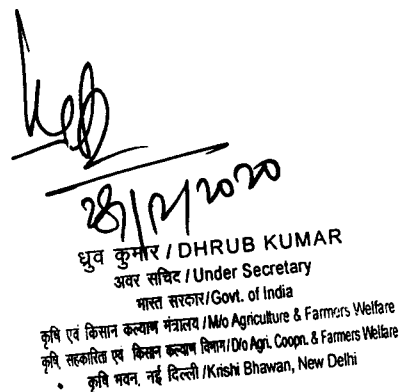 28/12/2020
ध्रुव कुमार / DHRUB KUMAR
अवर सचिव / Under Secretary
भारत सरकार/Govt. of India
कृषि एवं किसान कल्याण मंत्रालय / M/o Agriculture & Farmers Welfare
कृषि, सहकारिता एवं किसान कल्याण विभाग/D/o Agri. Coopn. & Farmers Welfare
कृषि भवन, नई दिल्ली /Krishi Bhawan, New Delhi